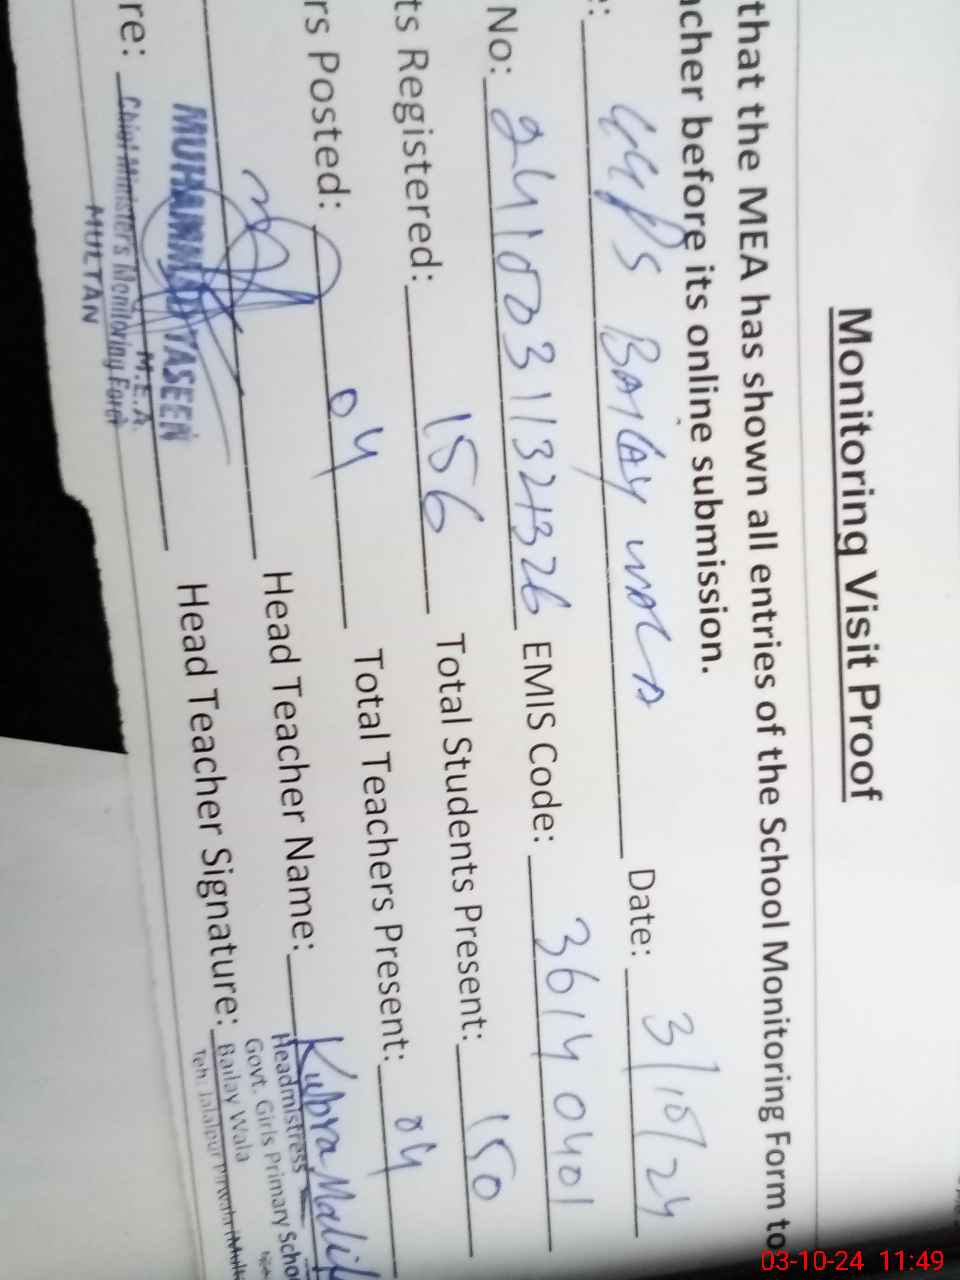 Monitoring Visit Proof
that the MEA has shown all entries of the School Monitoring Form to
acher before its online submission.
e: GGPS BAILAY WALA Date: 3/10/24
No: 24100311321326 EMIS Code: 36140401
ts Registered: 156 Total Students Present: 150
rs Posted: 04 Total Teachers Present: 04
Head Teacher Name: Kubra Malik
re: Head Teacher Signature:
MUHAMMAD YASEEN
M.E.A.
Chief Minister's Monitoring Force
MULTAN
Headmistress
Govt. Girls Primary Schoo
Bailay Wala
Teh: Jalalpur Pirwala (Mult
03-10-24 11:49